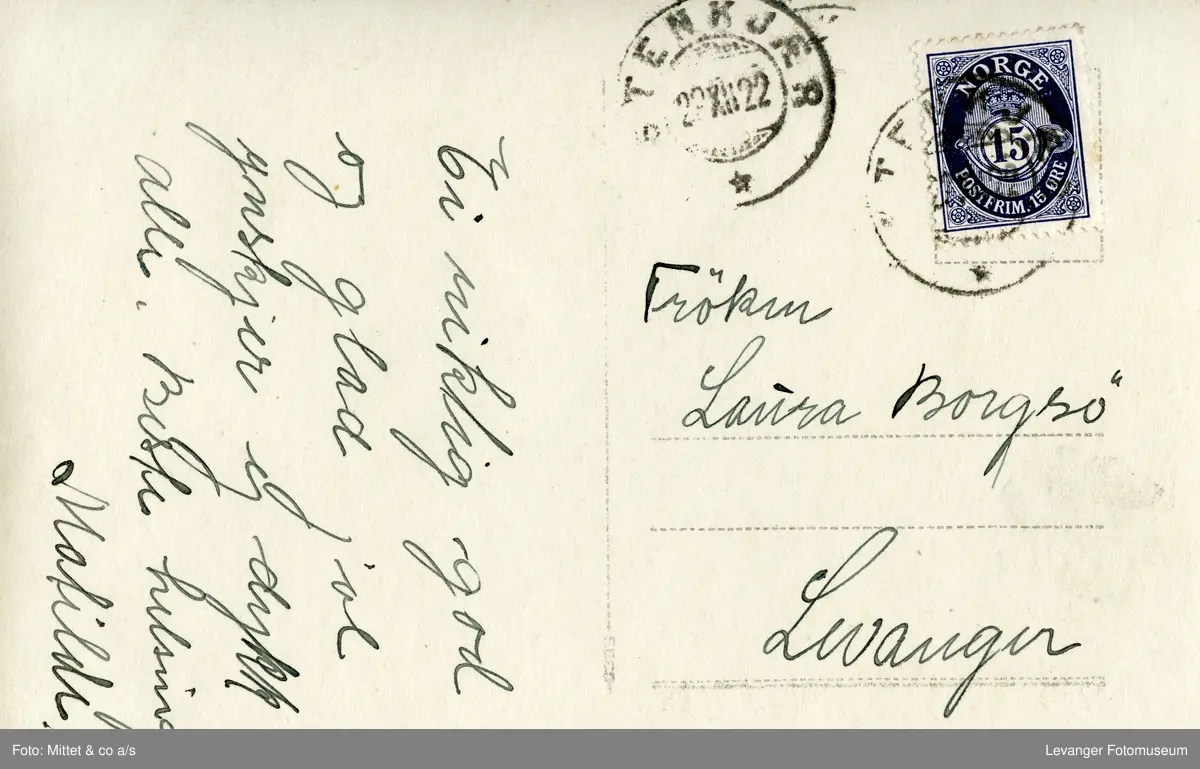 Ei riktig god
og glad jol
ynskjer eg dykk
alle. Beste helsing
Matilde.
STENKJÆR
29 XII 22
NORGE
15
POSTFRIM. 15 ØRE
Fröken
Laura Borgsö
Levanger
Foto: Mittet & co a/s
Levanger Fotomuseum